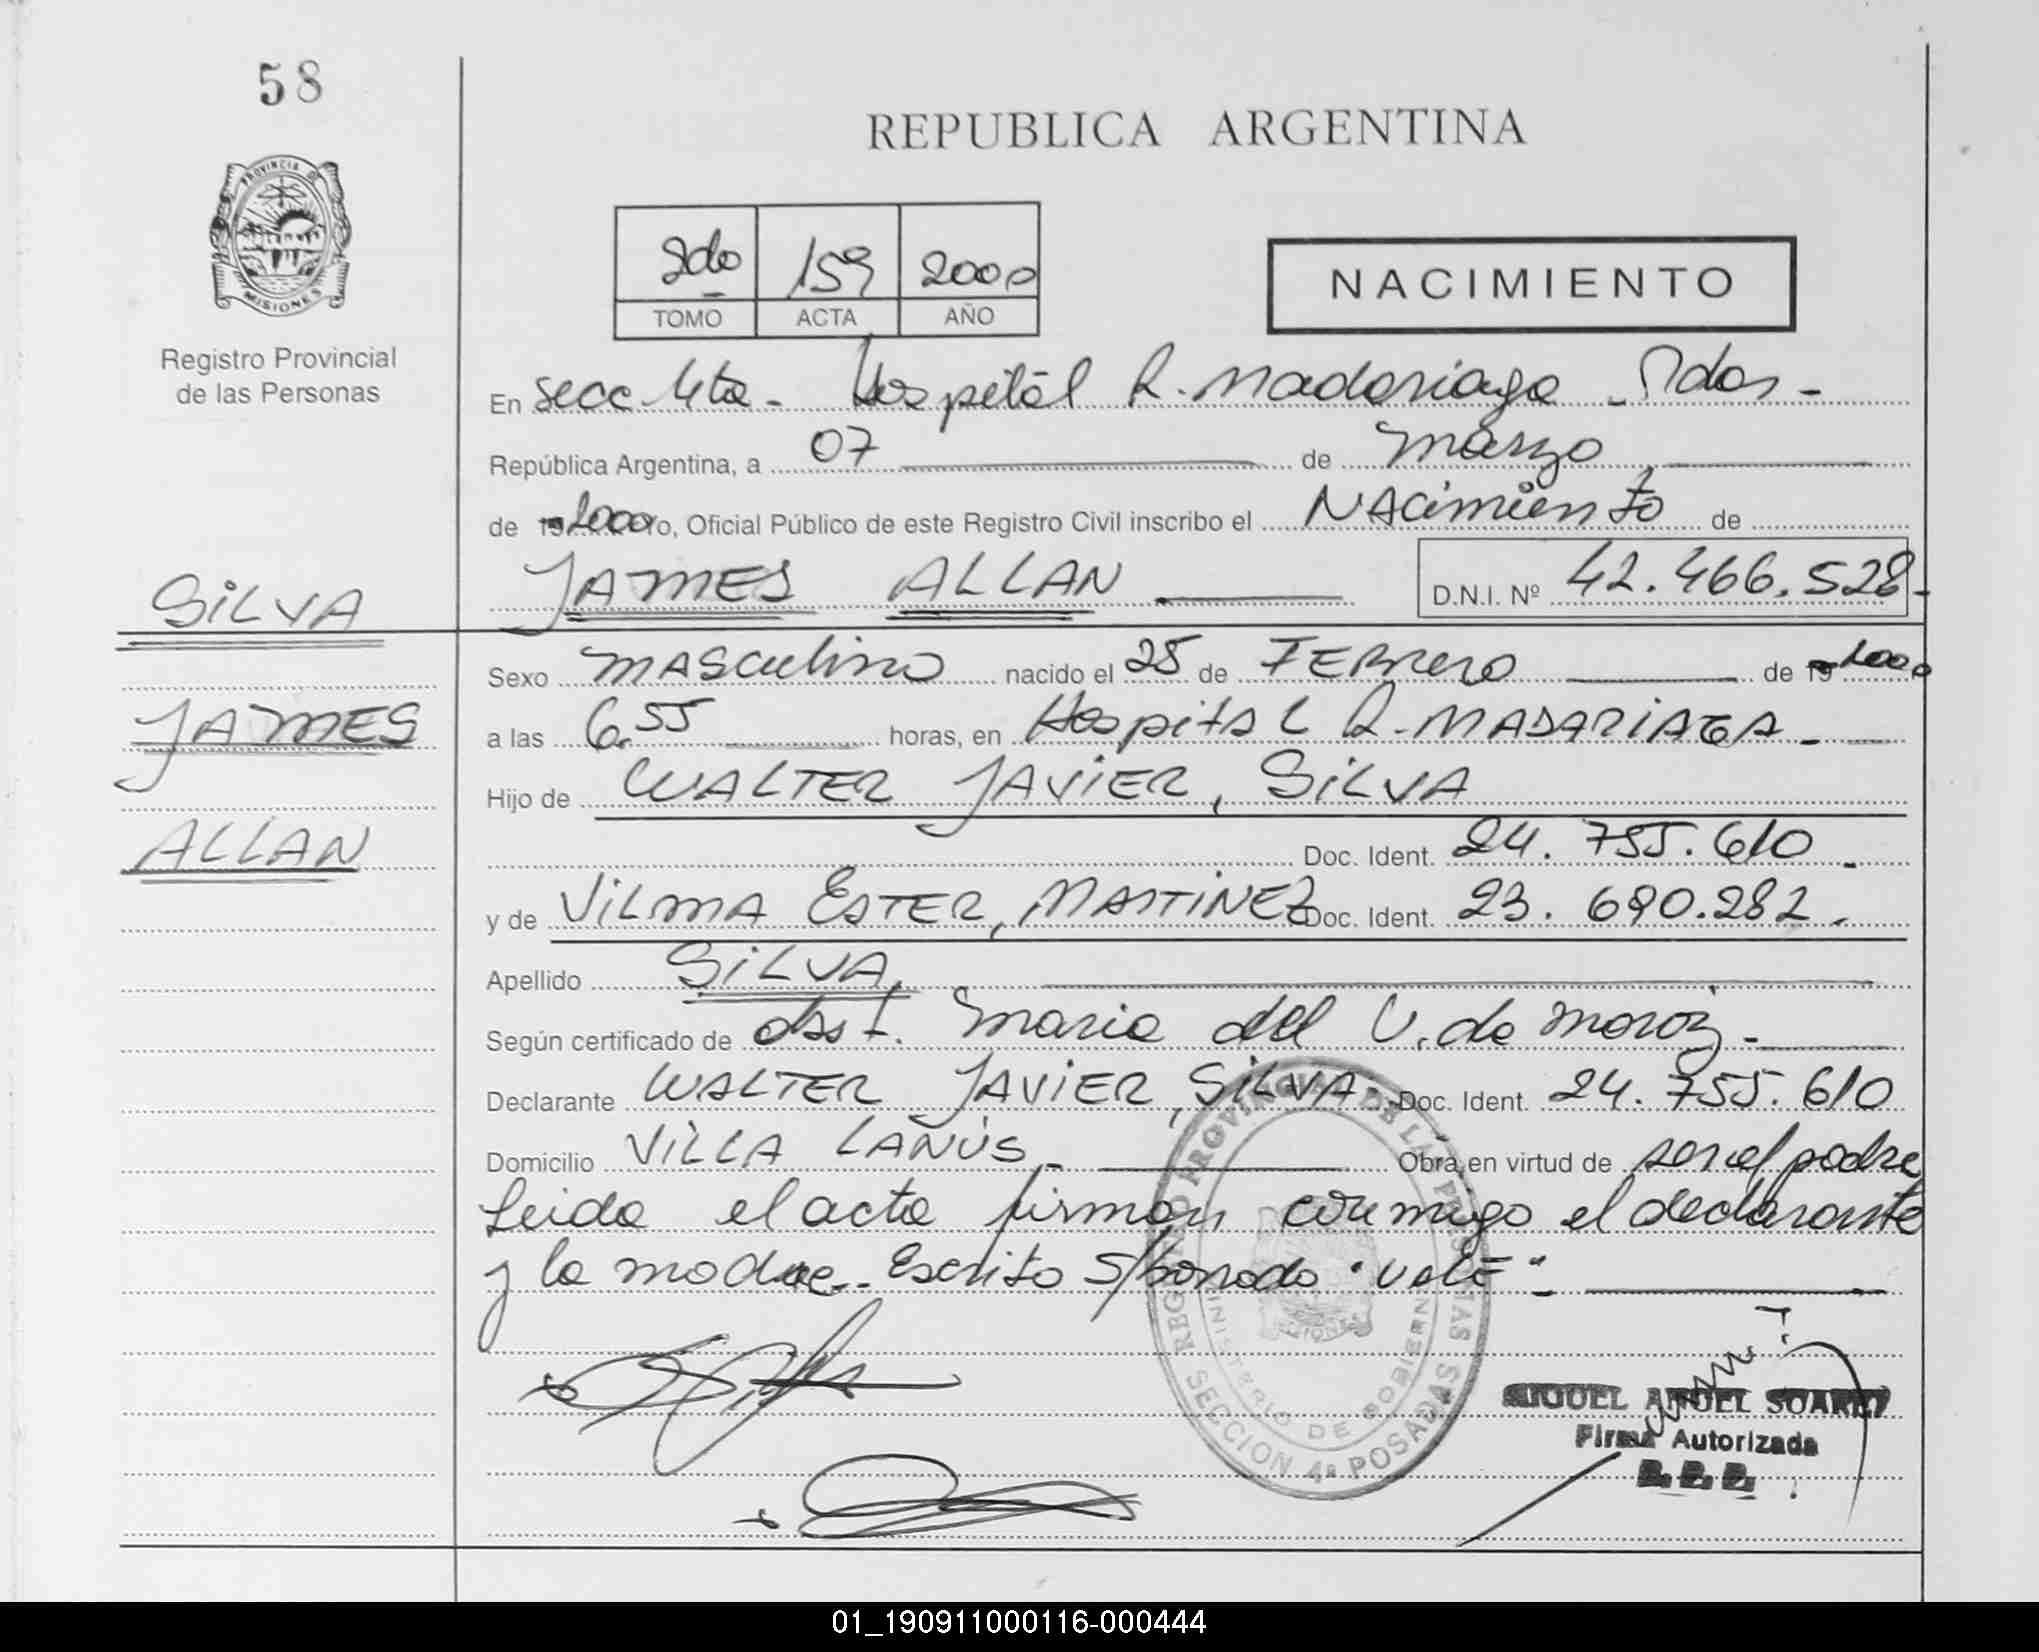 58
REPUBLICA ARGENTINA
PROVINCIA D
MISIONES
Registro Provincial
de las Personas
2do 159 2000
TOMO ACTA AÑO
NACIMIENTO
En secc 4ta - Hospital R. Madariaga - Pdas -
República Argentina, a 07 de marzo
de 19 2000 Yo, Oficial Público de este Registro Civil inscribo el NAcimiento de
JAMES ALLAN D.N.I. Nº 42.466.528-
SiLVA
JAMES
ALLAN
Sexo MAScuLino nacido el 25 de FEBrero de 19 2000
a las 6.55 horas, en HospitaL R. MADARiAGA -
Hijo de WALTER JAViER, SiLVA
Doc. Ident. 24.755.610 -
y de ViLMA ESTER, MARTiNEZ Doc. Ident. 23.690.282.
Apellido SiLVA,
Según certificado de obst. Maria del C. de Moroz -
Declarante WALTER JAViER, SiLVA - Doc. Ident. 24.755.610
Domicilio ViLLA LANÚS - Obra en virtud de ser el padre,
Leida el acta firman conmigo el declarante
y la madre.- Escrito S/borrado "VALE" -
REGISTRO PROVINCIAL DE LAS PERSONAS
MINISTERIO DE GOBIERNO
MISIONES
SECCION 4ª POSADAS
MIGUEL ANGEL SUAREZ
Firma Autorizada
R. P. P.
01_190911000116-000444